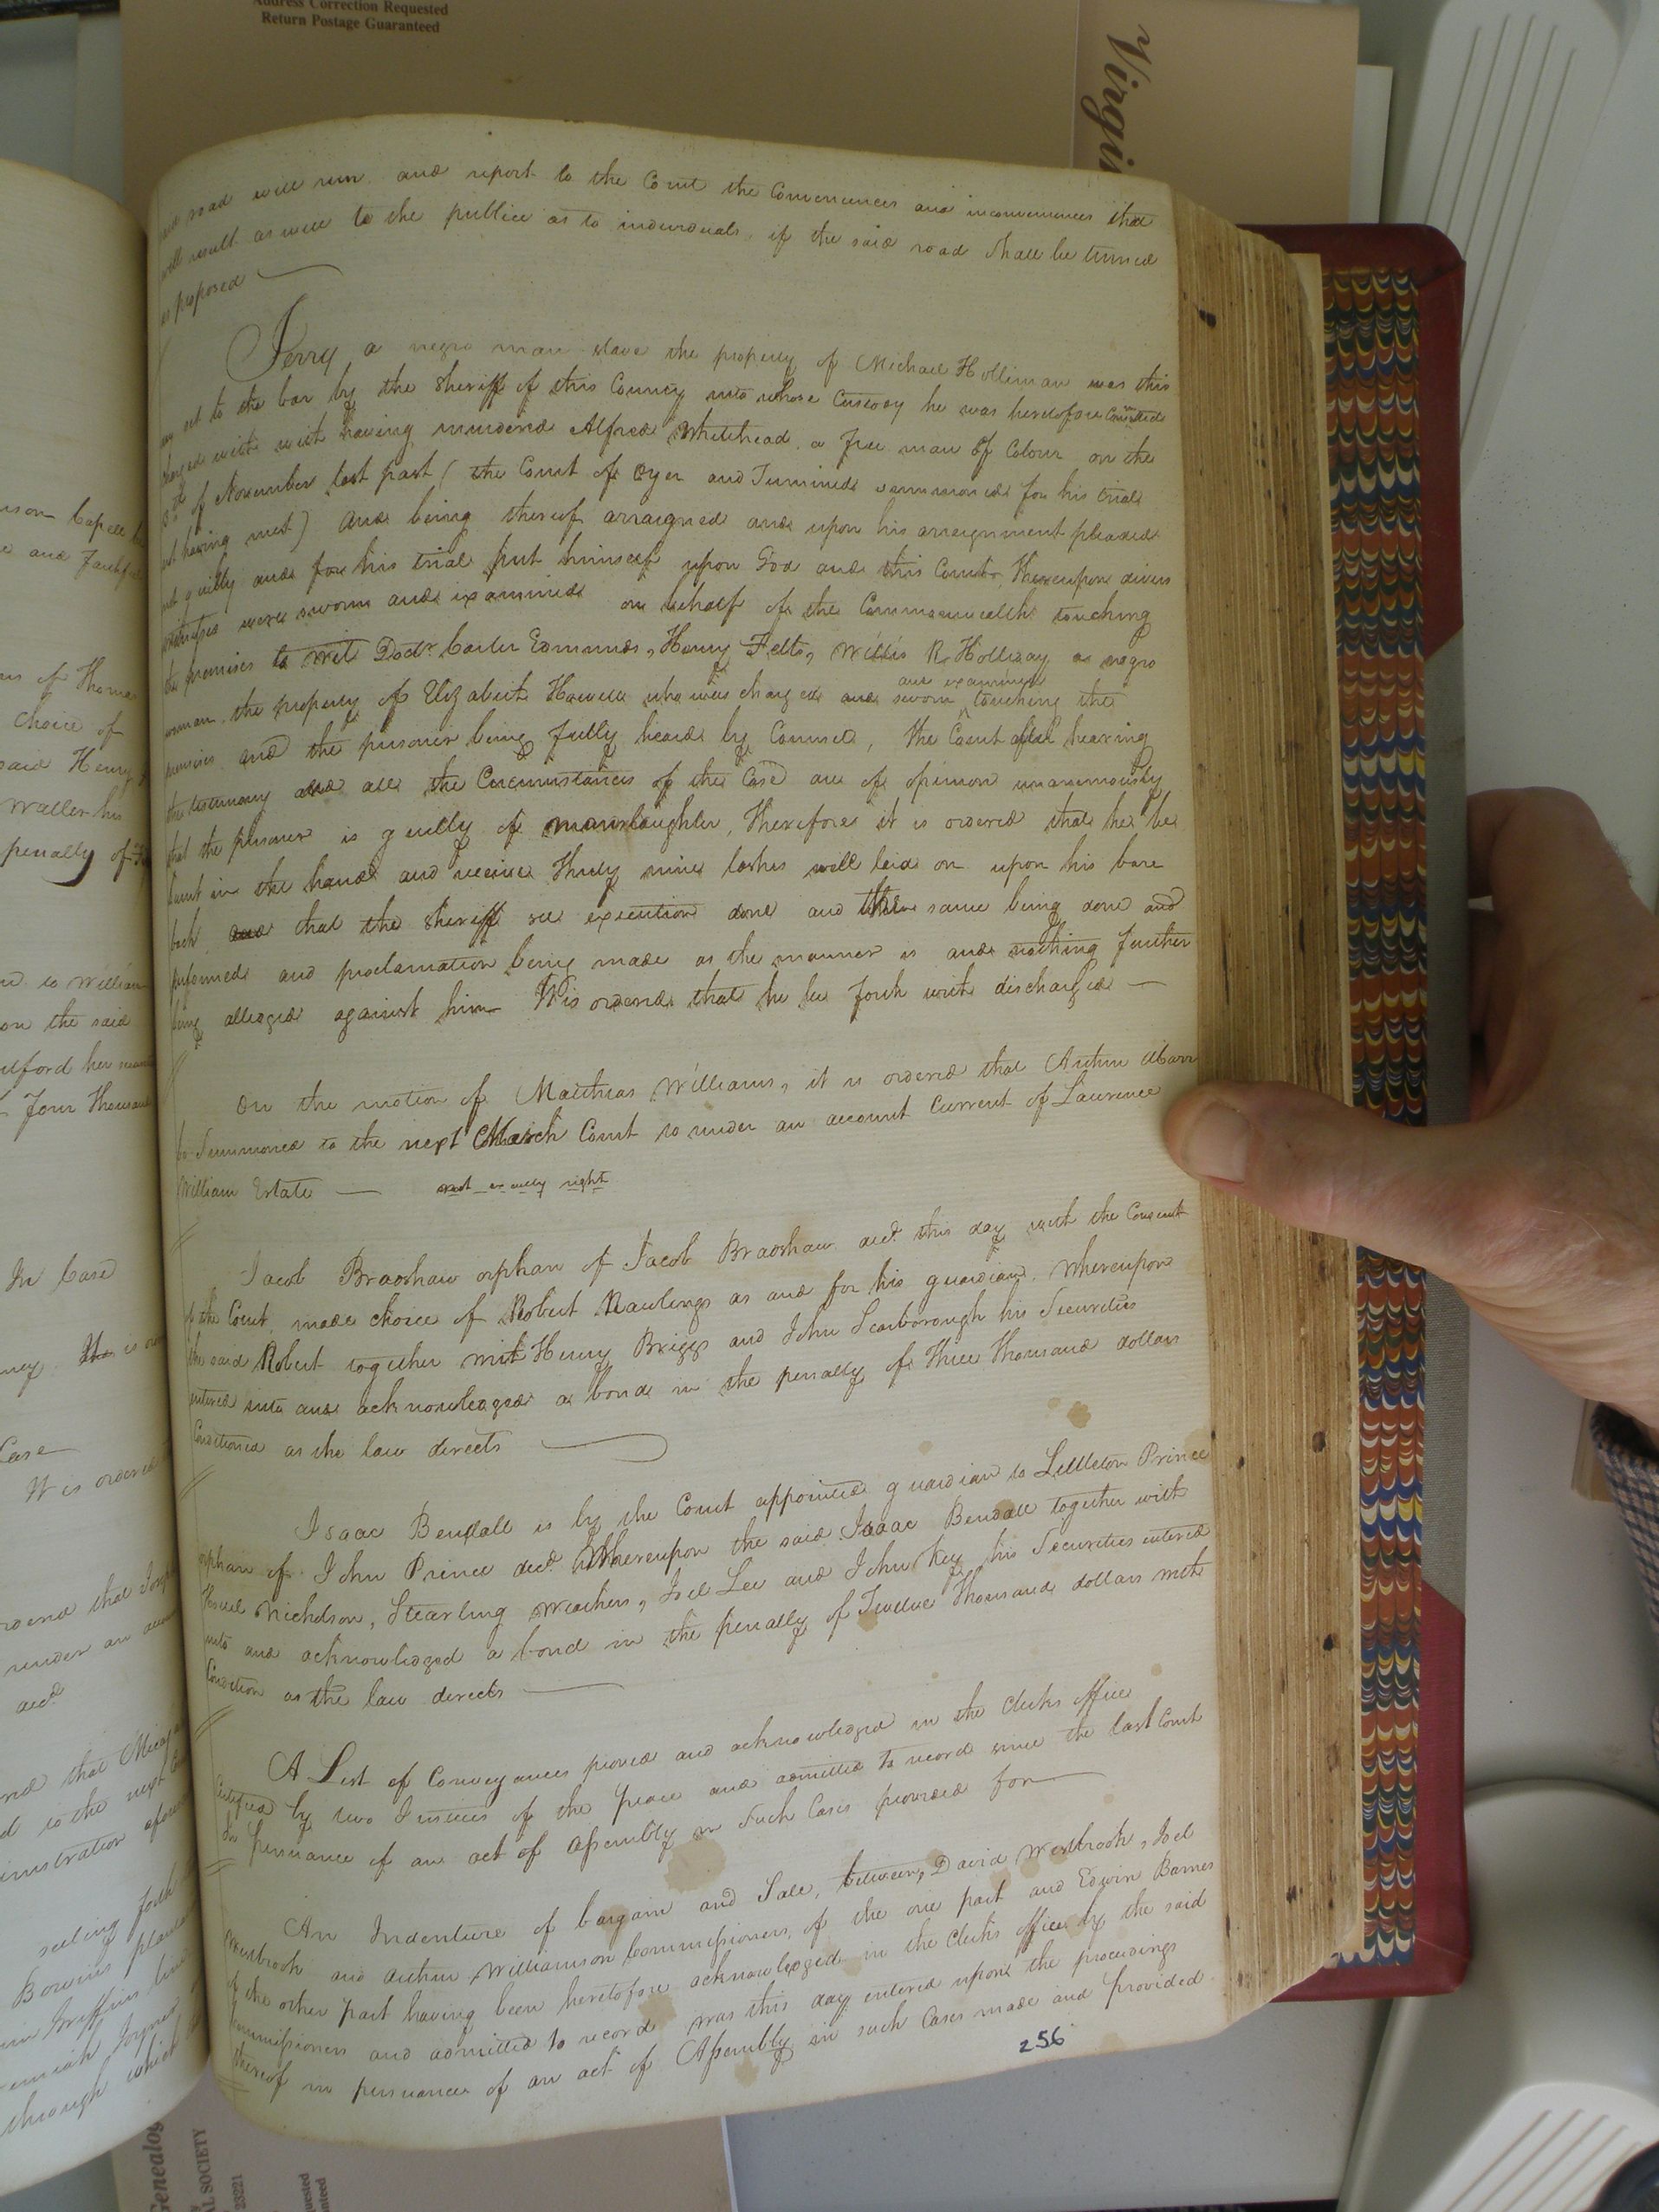 Address Correction Requested
Return Postage Guaranteed
Virgin
said road will run and report to the Court the Conveniences and inconveniences that
will result as well to the publice as to individuals, if the said road shall be turned
as proposed
Jerry a negro man slave the property of Michael Holliman was this
day set to the bar by the Sheriff of this County into whose Custody he was heretofore Committed
charged with with having murdered Alfred Whitehead a free man of Colour on the
of November last past (the Court of Oyer and Terminer summoned for his trial
not having met) and being thereof arraigned and upon his arraignment pleaded
not guilty and for his trial put himself upon God and this Court, Whereupon divers
witnesses were sworn and examined on behalf of the Commonwealth touching
the premises to wit Doctr. Carter Edmunds, Henry Felts, Willis R. Holliday a negro
woman the property of Elizabeth Howell who was charged and sworn and examined touching the
premises and the prisoner being fully heard by Counsel, the Court after hearing
the testimony and all the Circumstances of the Case are of opinion unanimously
that the prisoner is guilty of manslaughter, Therefore it is ordered that he be
burnt in the hand and receive Thirty nine lashes well laid on upon his bare
back and that the Sheriff see execution done and the same being done and
performed and proclamation being made as the manner is and nothing further
being alledged against him It is ordered that he be forth with discharged
On the motion of Matthias Williams, it is ordered that Arthur
be Summoned to the next March Court to render an account Current of Laurence
William Estate not exactly right
Jacob Bradshaw orphan of Jacob Bradshaw decd. this day with the Consent
of the Court, made choice of Robert Rawlings as and for his guardian, Whereupon
the said Robert together with Henry Briggs and John Scarborough his Securities
entered into and acknowledged a bond in the penalty of Three Thousand dollars
Conditioned as the law directs
Isaac Bendall is by the Court appointed guardian to Littleton Prince
orphan of John Prince decd. Whereupon the said Isaac Bendall together with
Nicholson, Stearling Meachens, Joel Lee and John Key his Securities entered
into and acknowledged a bond in the penalty of Twelve Thousand dollars with
Condition as the law directs
A List of Conveyances proved and acknowledged in the Clerks office
Certified by two Justices of the peace and admitted to record since the last Court
In pursuance of an act of Assembly in Such Cases provided for
An Indenture of bargain and Sale, between, David Westbrook, Joel
Westbrook and Arthur Williamson Commissioners, of the one part and Edwin Barnes
of the other part having been heretofore acknowledged in the Clerks office by the said
Commissioners and admitted to record was this day entered upon the proceedings
thereof in pursuance of an act of Assembly in such Cases made and provided
256
of Thomas
Choice of
said Henry
Waller his
penalty of
to William
on the said
Four Thousand
In Case
is
Case
It is ordered
that
render an
decd
that
to the next
Genealog
SOCIETY
23221